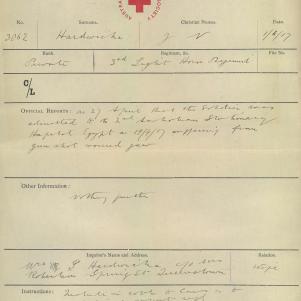 SOCIETY AUSTRA
No. Surname. Christian Names. Date.
3062 Hardwicke J N 1/6/17
Rank. Regiment, &c. File No.
Private 3rd Light Horse Regiment
C/L
OFFICIAL REPORTS: on 27 April that the Soldier was
admitted to the 2nd Australian Stationary
Hospital Egypt on 19/4/17 suffering from
gun shot wound jaw
Other Information:
Nothing further
Inquirer's Name and Address. Relation.
Mrs Hardwicke c/o Mrs
Robertson Spring St Queenstown wife
Instructions: